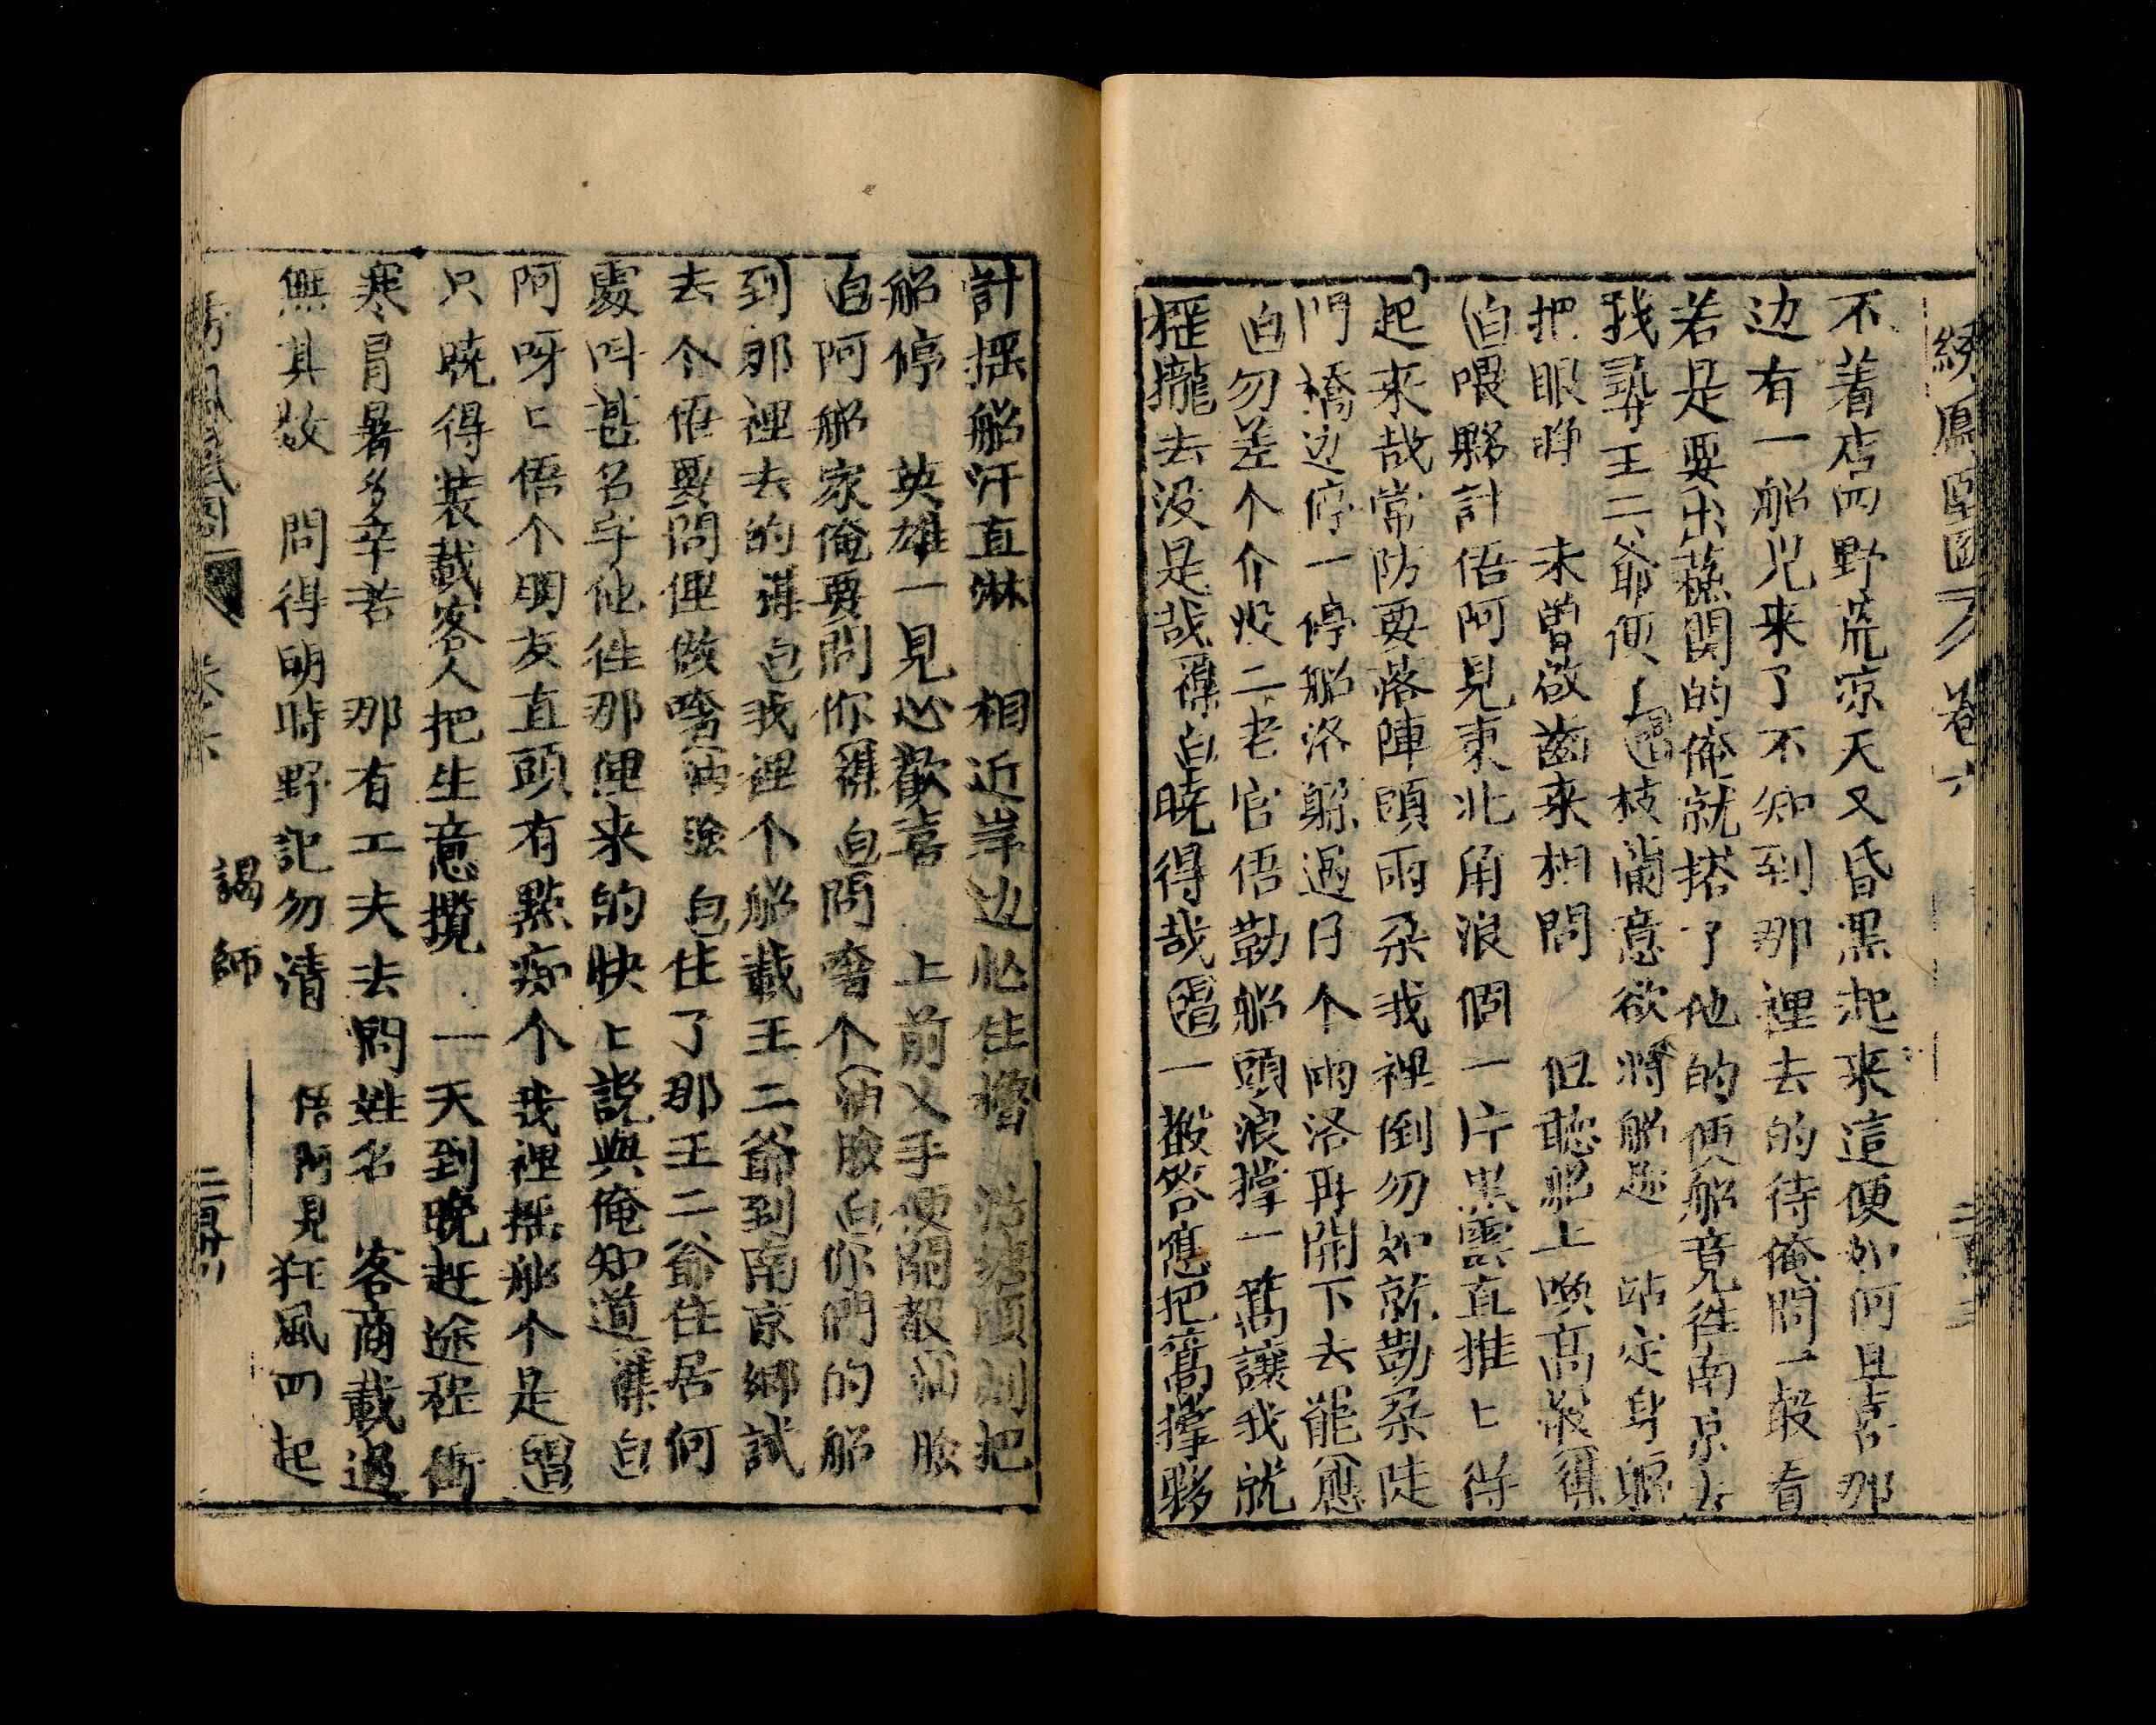 綉鳳凰圖 卷六
不着店四野荒凉天又昏黑起来這便如何且喜那
边有一船児来了不知到那裡去的待俺問一般看
若是要出蘓関的俺就搭了他的便船竟徃南京去
找尋王二爺便了 唱 枝蘭意欲將船趂 站定身軀
把眼睁 未曽啟齒来相問 但聽船上喚高聲
白喂夥計悟阿見東北角浪個一片黒雲直推上得
起来哉常防要落陣頭雨朶我裡倒勿如就勤朶陡
門橋边停一停船洛躲過仔个雨洛再開下去罷
白勿差个介没二老官悟勤船頭浪撑一篙讓我就
摇攏去没是哉 白 暁得哉 唱 一聲答應把篙撑 夥
計揺船汗直淋 相近岸边 住櫓 把
船停 英雄一見心歡喜 上前乂手便開
白阿船家俺要問你 白 問奢个 白 你們的船
到那裡去的 白 我裡个船載王二爺到南京鄉試
去个悟要問俚做啥 白 住了那王二爺住居何
處呌甚名字他徃那俚来的快上説與俺知道 白
阿呀上悟个朋友直頭有點痴个我裡揺船个是 唱
只暁得装載客人把生意攬 一天到晚赶途程 衝
寒冒暑多辛苦 那有工夫去問姓名 客商載過
無其数 問得明時野記勿清 悟阿見狂風四起
卷六 謁師